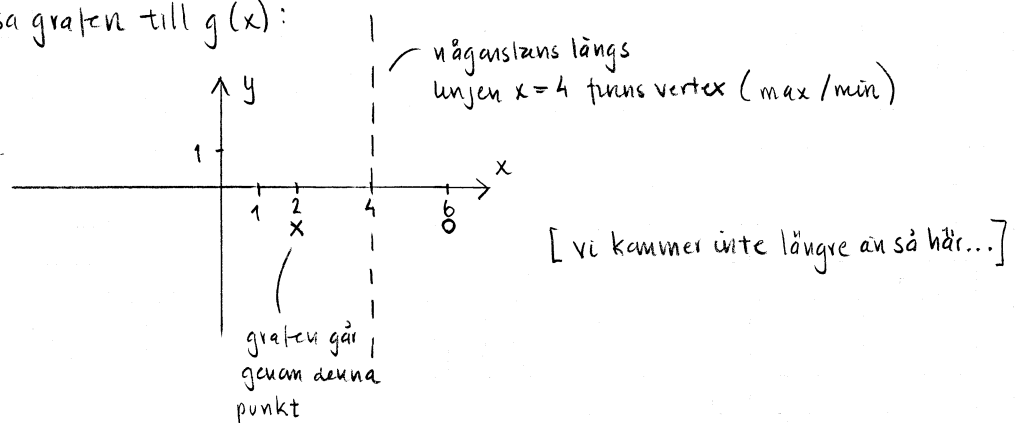 sa grafen till g(x):
någonstans längs
linjen x = 4 finns vertex (max/min)
y
1
x
1 2 4 6
X O
[vi kommer inte längre än så här...]
grafen går
genom denna
punkt